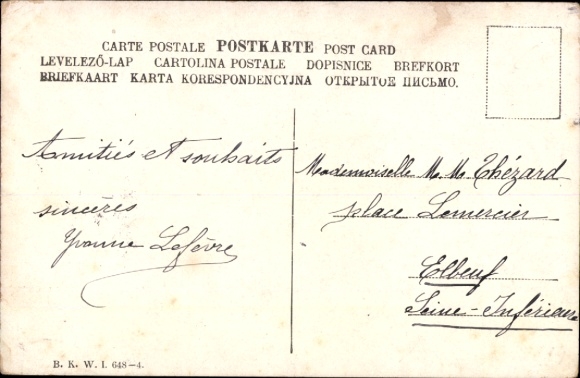 CARTE POSTALE POSTKARTE POST CARD
LEVELEZŐ-LAP CARTOLINA POSTALE DOPISNICE BREFKORT
BRIEFKAART KARTA KORESPONDENCYJNA ОТКРЫТОЕ ПИСЬМО.
Amitiés et souhaits
sincères
Yvonne Lefèvre
Mademoiselle M. M. Thézard
place Lemercier
Elbeuf
Seine-Inférieure
B. K. W. I. 648-4.